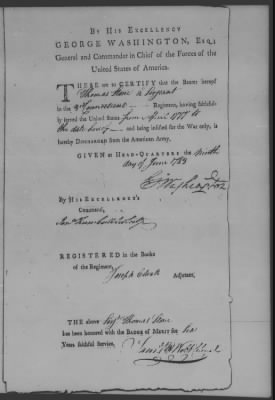 BY HIS EXCELLENCY
GEORGE WASHINGTON, ESQ;
General and Commander in Chief of the Forces of the
United States of America.
THESE are to CERTIFY that the Bearer hereof
Thomas Serjeant
in the Connecticut Regiment, having faithful-
ly served the United States from April 1777 to
the date hereof and being inlisted for the War only, is
hereby DISCHARGED from the American Army.
GIVEN at HEAD-QUARTERS the Ninth
day of June 1783
GWashington
By HIS EXCELLENCY'S
Command,
REGISTERED in the Books
of the Regiment,
Joseph Adjutant,
THE above Serjt Thomas
has been honored with the BADGE of MERIT for Six
Years faithful Service.